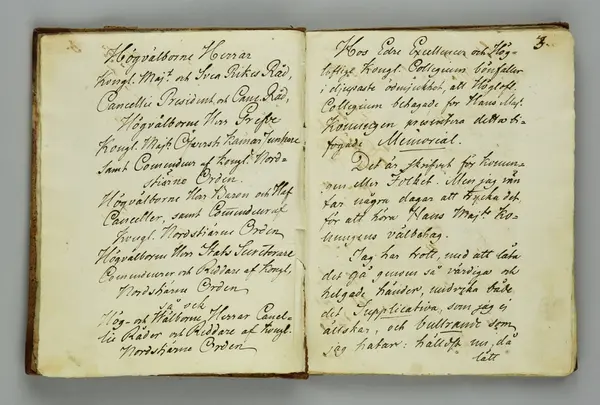 Högvälborne Herrar
Kongl. Majt och Svea Rikes Råd,
Cancellie President, och Canc. Råd,
Högvälborne Herr Grefve
Kongl. Majts Öfverste Kamar Junkare
samt Comendeur af Kongl. Nord-
stjärne Orden.
Högvälborne Herr Baron och Hof
Canceller, samt Comendeur af
Kongl. Nordstjärne Orden
Högvälborne Herr Stats Secreterare
Comendeurer och Riddare af Kongl.
Nordstjärne Orden
så ock
Hög- och Wälborne Herrar Cancel-
lie Råder och Riddare af Kongl.
Nordstjärne Orden
3.
Hos Edre Excellencer och Hög-
loflige Kongl. Collegium bönfaller
i djupaste ödmjukhet, att Höglofl.
Collegium behagade för Hans Maj.
Konungen presentera detta bi-
fogade Memorial.
Det är skrifvit för Konun-
gen eller Folket. Men jag vän
tar några dagar att trycka det,
för att höra Hans Majts Ko-
nungens välbehag.
Jag har trott, med att låta
det gå genom så värdiga och
helgade händer, undvika både
det Supplicativa, som jag ej
älskar, och bultrande som
jag hatar: nu, då
lätt